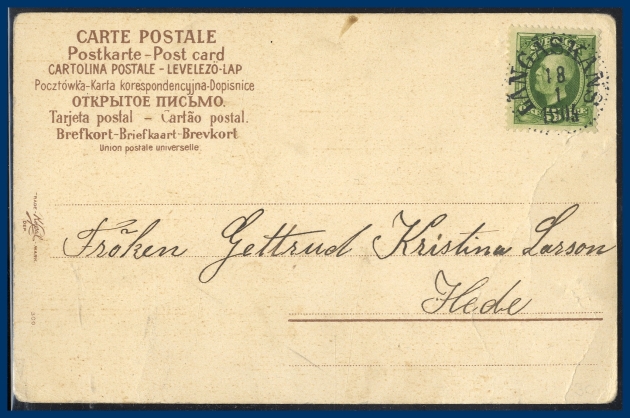 CARTE POSTALE
Postkarte – Post card
CARTOLINA POSTALE – LEVELEZŐ-LAP
Pocztówka-Karta korespondencyjna-Dopisnice
ОТКРЫТОЕ ПИСЬМО.
Tarjeta postal – Cartão postal.
Brefkort-Briefkaart-Brevkort
Union postale universelle.
LÅNGÅSKANS
18
1
Fröken Gettrud Kristina Larson
Hede
TRADE MARK